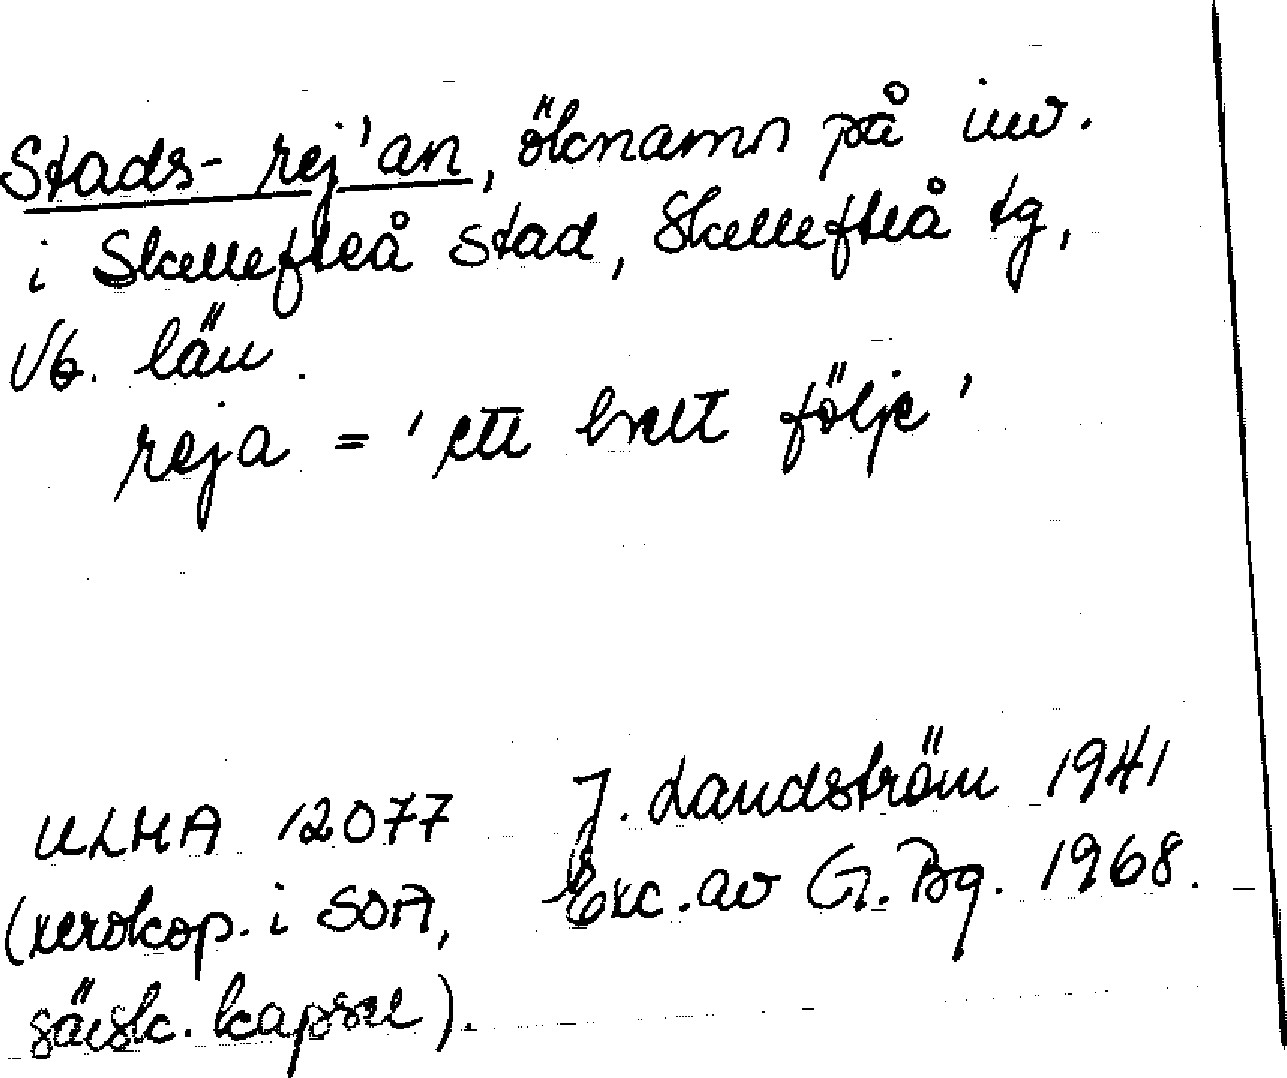 Stads-rej'an, öknamn på inv.
i Skellefteå stad, Skellefteå tg,
Vb. län.
reja = 'ett helt följe'
ULMA 12077 J. Landström 1941
(xerokop. i SOA, Exc. av G. Bg. 1968.
särsk. kapsel).